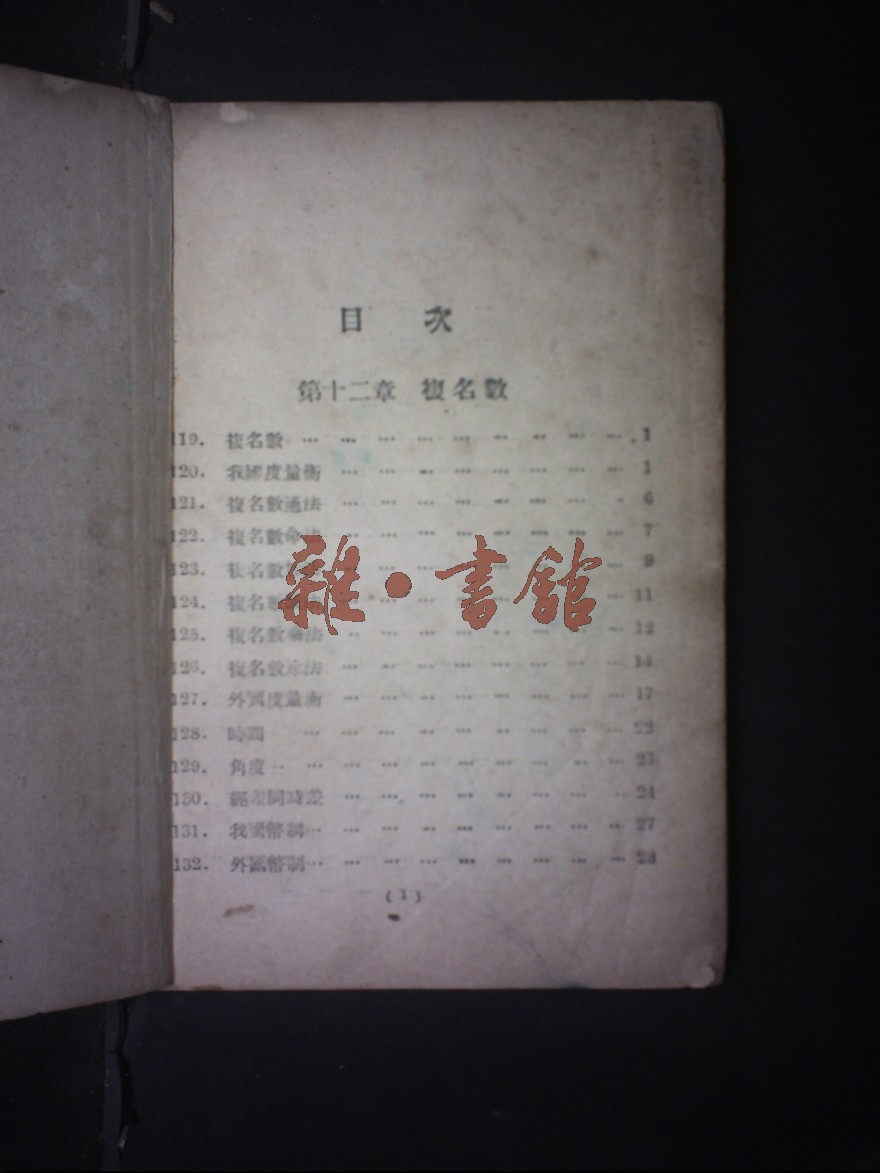 目 次
第十二章 複名數
119. 複名數 … … … … … … … … … 1
120. 我國度量衡 … … … … … … … … 1
121. 複名數通法 … … … … … … … … 6
122. 複名數命法 … … … … … … … … 7
123. 複名數 … … … … … … … … 9
124. 複名 … … … … … … … … 11
125. 複名數乘法 … … … … … … … … 12
126. 複名數除法 … … … … … … … … 14
127. 外國度量衡 … … … … … … … … 17
128. 時間 … … … … … … … … … 22
129. 角度 … … … … … … … … … 23
130. 經差同時差 … … … … … … … … 24
131. 我國幣制 … … … … … … … … 27
132. 外國幣制 … … … … … … … … 28
(1)
雜·書館